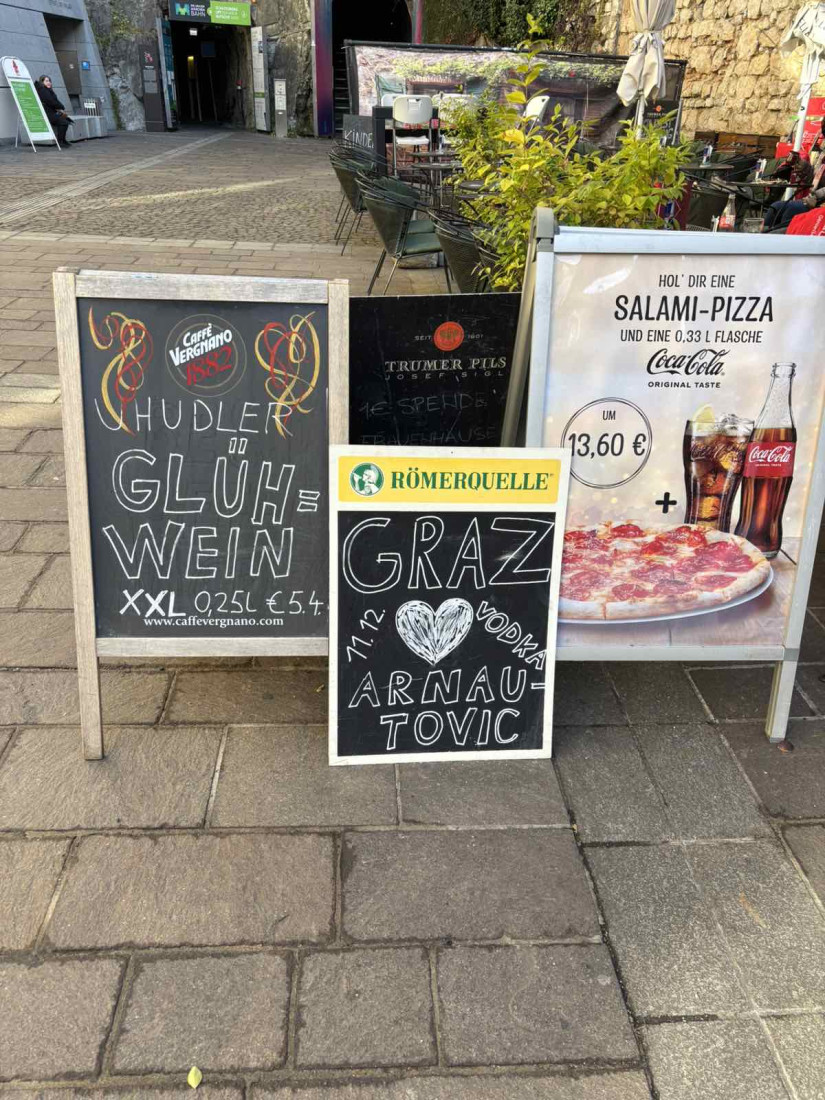 CAFFÈ
VERGNANO
1882
UHUDLER
GLÜH=
WEIN
XXL 0,25L €5.4
www.caffevergnano.com
KINDE
SEIT 1601
TRUMER PILS
JOSEF SIGL
1€ SPENDE
FRAUENHÄUSE
RÖMERQUELLE
GRAZ
11.12.
VODKA
ARNAU-
TOVIC
HOL' DIR EINE
SALAMI-PIZZA
UND EINE 0,33 L FLASCHE
Coca-Cola
ORIGINAL TASTE
UM
13,60 €
+
Coca-Cola